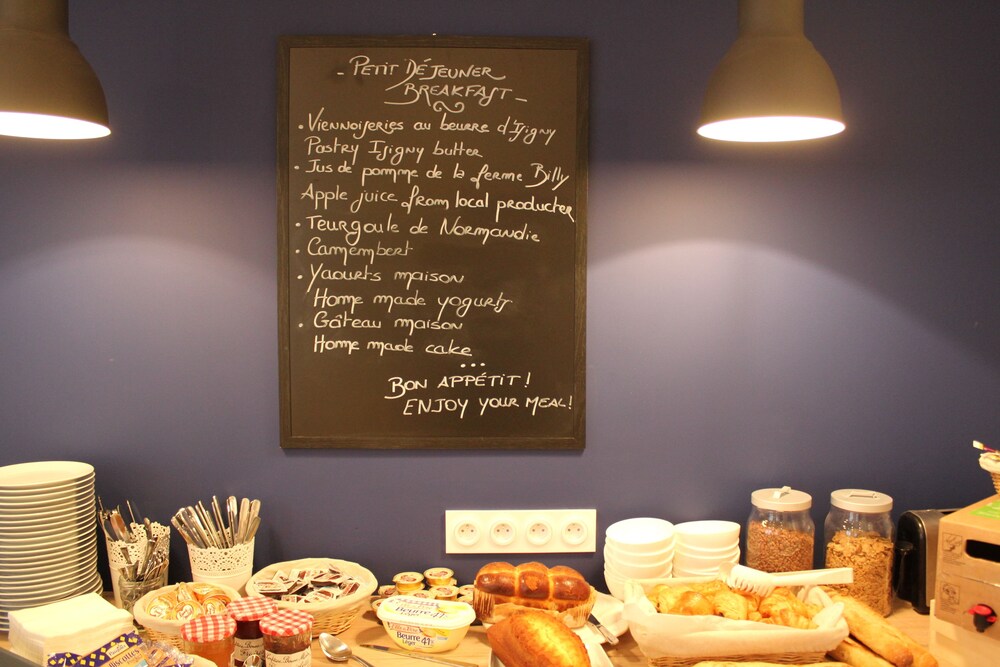 - Petit Déjeuner
Breakfast -
• Viennoiseries au beurre d'Isigny
Pastry Isigny butter
• Jus de pomme de la ferme Billy
Apple juice from local producter
• Teurgoule de Normandie
• Camembert
• Yaourts maison
Home made yogurts
• Gâteau maison
Home made cake
...
Bon appétit !
Enjoy your meal !
Beurre 41%
léger